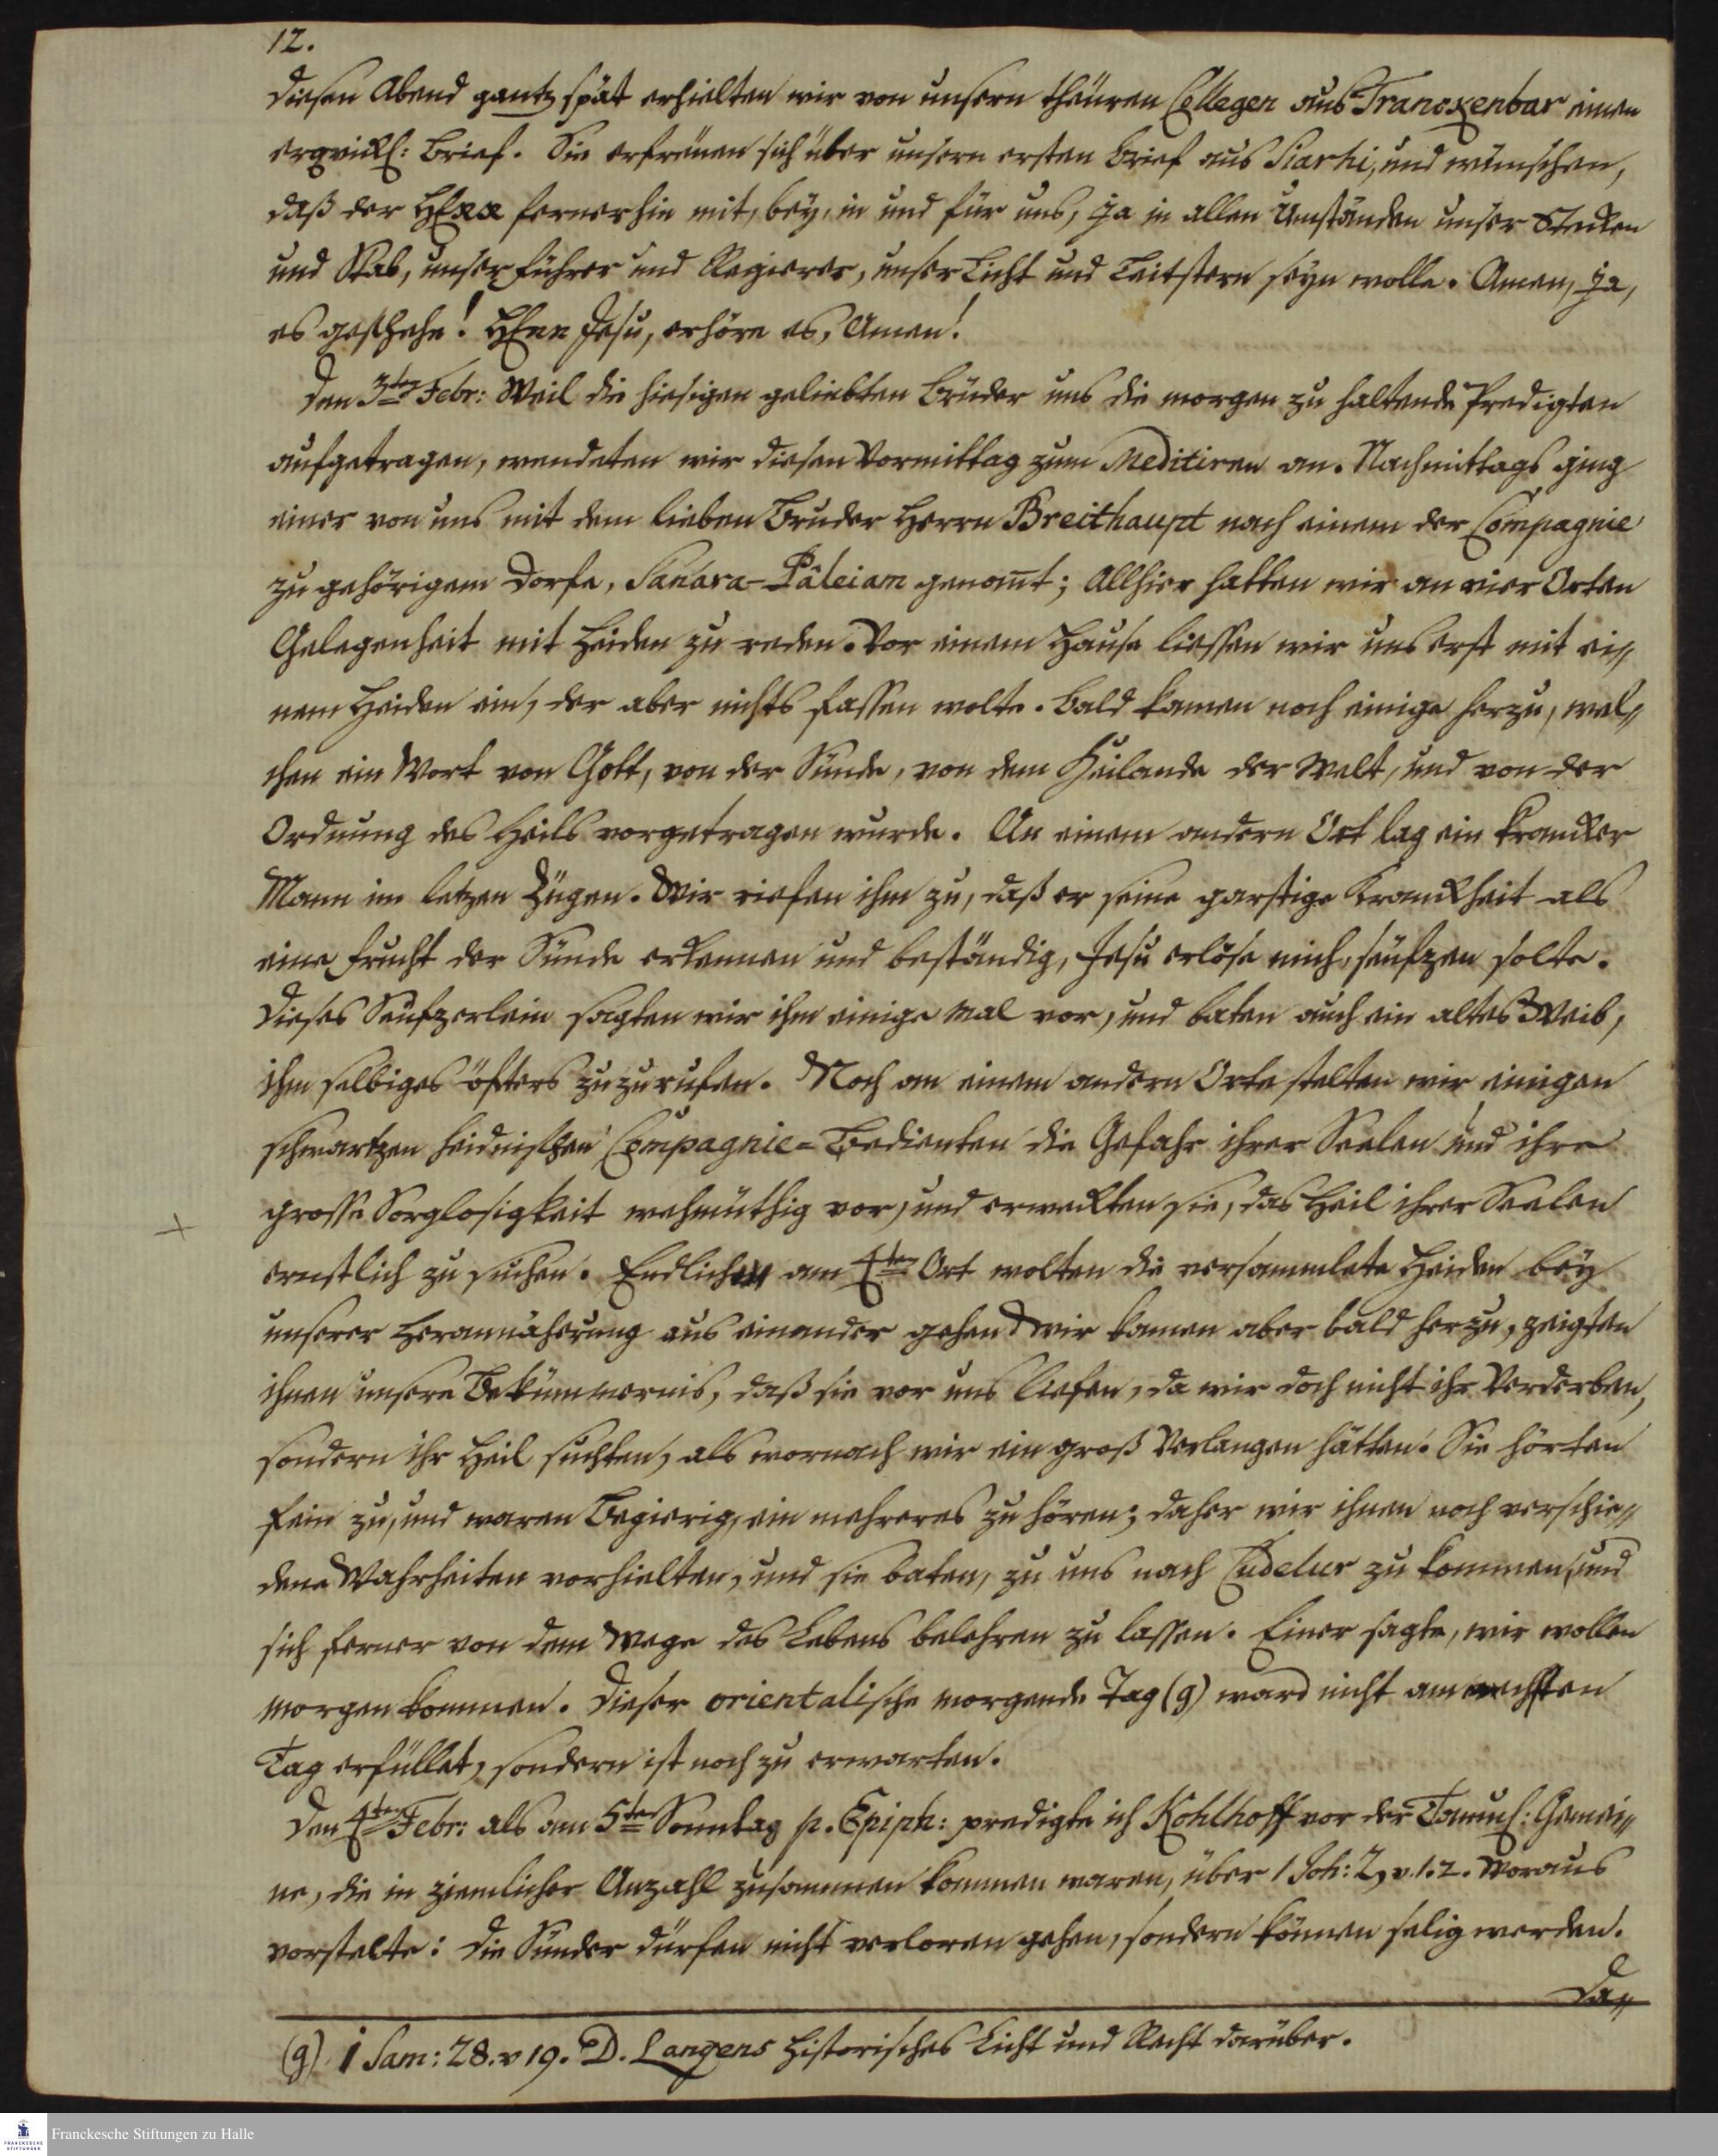 12.
Diesen Abend gantz spät erhielten wir von unsern theuren Collegen aus Tranckenbar einen
erqvickl: Brief. Sie erfreuen sich über unsern ersten Brief aus Siarhi, und wünschen,
daß der HErr fernerhin mit, bey, in und für uns, ja in allen Umständen unser Stecken
und Stab, unser Führer und Regierer, unser Licht und Leitstern seyn wolle. Amen, ja,
es geschehe! HErr Jesu, erhöre es, Amen!
Den 3ten Febr: Weil die hiesigen geliebten Brüder uns die morgen zu haltende Predigten
aufgetragen, wendeten wir diesen Vormittag zum Meditiren an. Nachmittags ging
einer von uns mit dem lieben Bruder Herrn Breithaupt nach einem der Compagnie
zu gehörigem Dorfe, Sanara-Pâleiam genom̄t; Allhier hatten wir an vier Orten
Gelegenheit mit Heiden zu reden. Vor einem Hause liessen wir uns erst mit ei„
nem Heiden ein, der aber nichts fassen wolte. Bald kamen noch einige herzu, wel„
chen ein Wort von Gott, von der Sünde, von dem Heilande der Welt, und von der
Ordnung des Heils vorgetragen wurde. An einem andern Ort lag ein krancker
Mann im letzen Zügen. Wir riefen ihm zu, daß er seine garstige Kranckheit als
eine Frucht der Sünde erkennen und beständig, Jesu erlöse mich, seufzen solte.
Dieses Seufzerlein sagten wir ihm einige mal vor, und baten auch ein altes Weib,
ihm selbiges öfters zuzurufen. Noch an einem andern Orte stelten wir einigen
schwartzen heidnischen Compagnie-Bedienten die Gefahr ihrer Seelen und ihre
grosse Sorglosigkeit wehmüthig vor, und erweckten sie, das Heil ihrer Seelen
ernstlich zu suchen. Endlich am 4ten Ort wolten die versammlete Heiden bey
unserer Herannäherung aus einander gehen. Wir kamen aber bald herzu, zeigten
ihnen unsere Bekümmernis, daß sie vor uns liefen, da wir doch nicht ihr Verderben,
sondern ihr Heil suchten, als wornach wir ein groß Verlangen hätten. Sie hörten
fein zu, und waren Begierig, ein mehreres zu hören; daher wir ihnen noch verschie„
dene Wahrheiten vorhielten, und sie baten, zu uns nach Cudelur zu kommen, und
sich ferner von dem Wege des Lebens belehren zu lassen. Einer sagte, wir wollen
morgen kommen. Dieser orientalische morgende Tag (g) ward nicht am nechsten
Tag erfüllet, sondern ist noch zu erwarten.
Den 4ten Febr: als am 5ten Sonntag p. Epiph: predigte ich Kohlhoff vor der Tamul: Gemei„
ne, die in ziemlicher Anzahl zusammen kommen waren, über 1 Joh: 2, v. 1. 2. Woraus
vorstelte: Die Sünder dürfen nicht verloren gehen, sondern können selig werden.
Da„
(g) 1 Sam: 28. v 19. D. Langens Historisches Licht und Recht darüber.
FRANCKESCHE STIFTUNGEN
Franckesche Stiftungen zu Halle